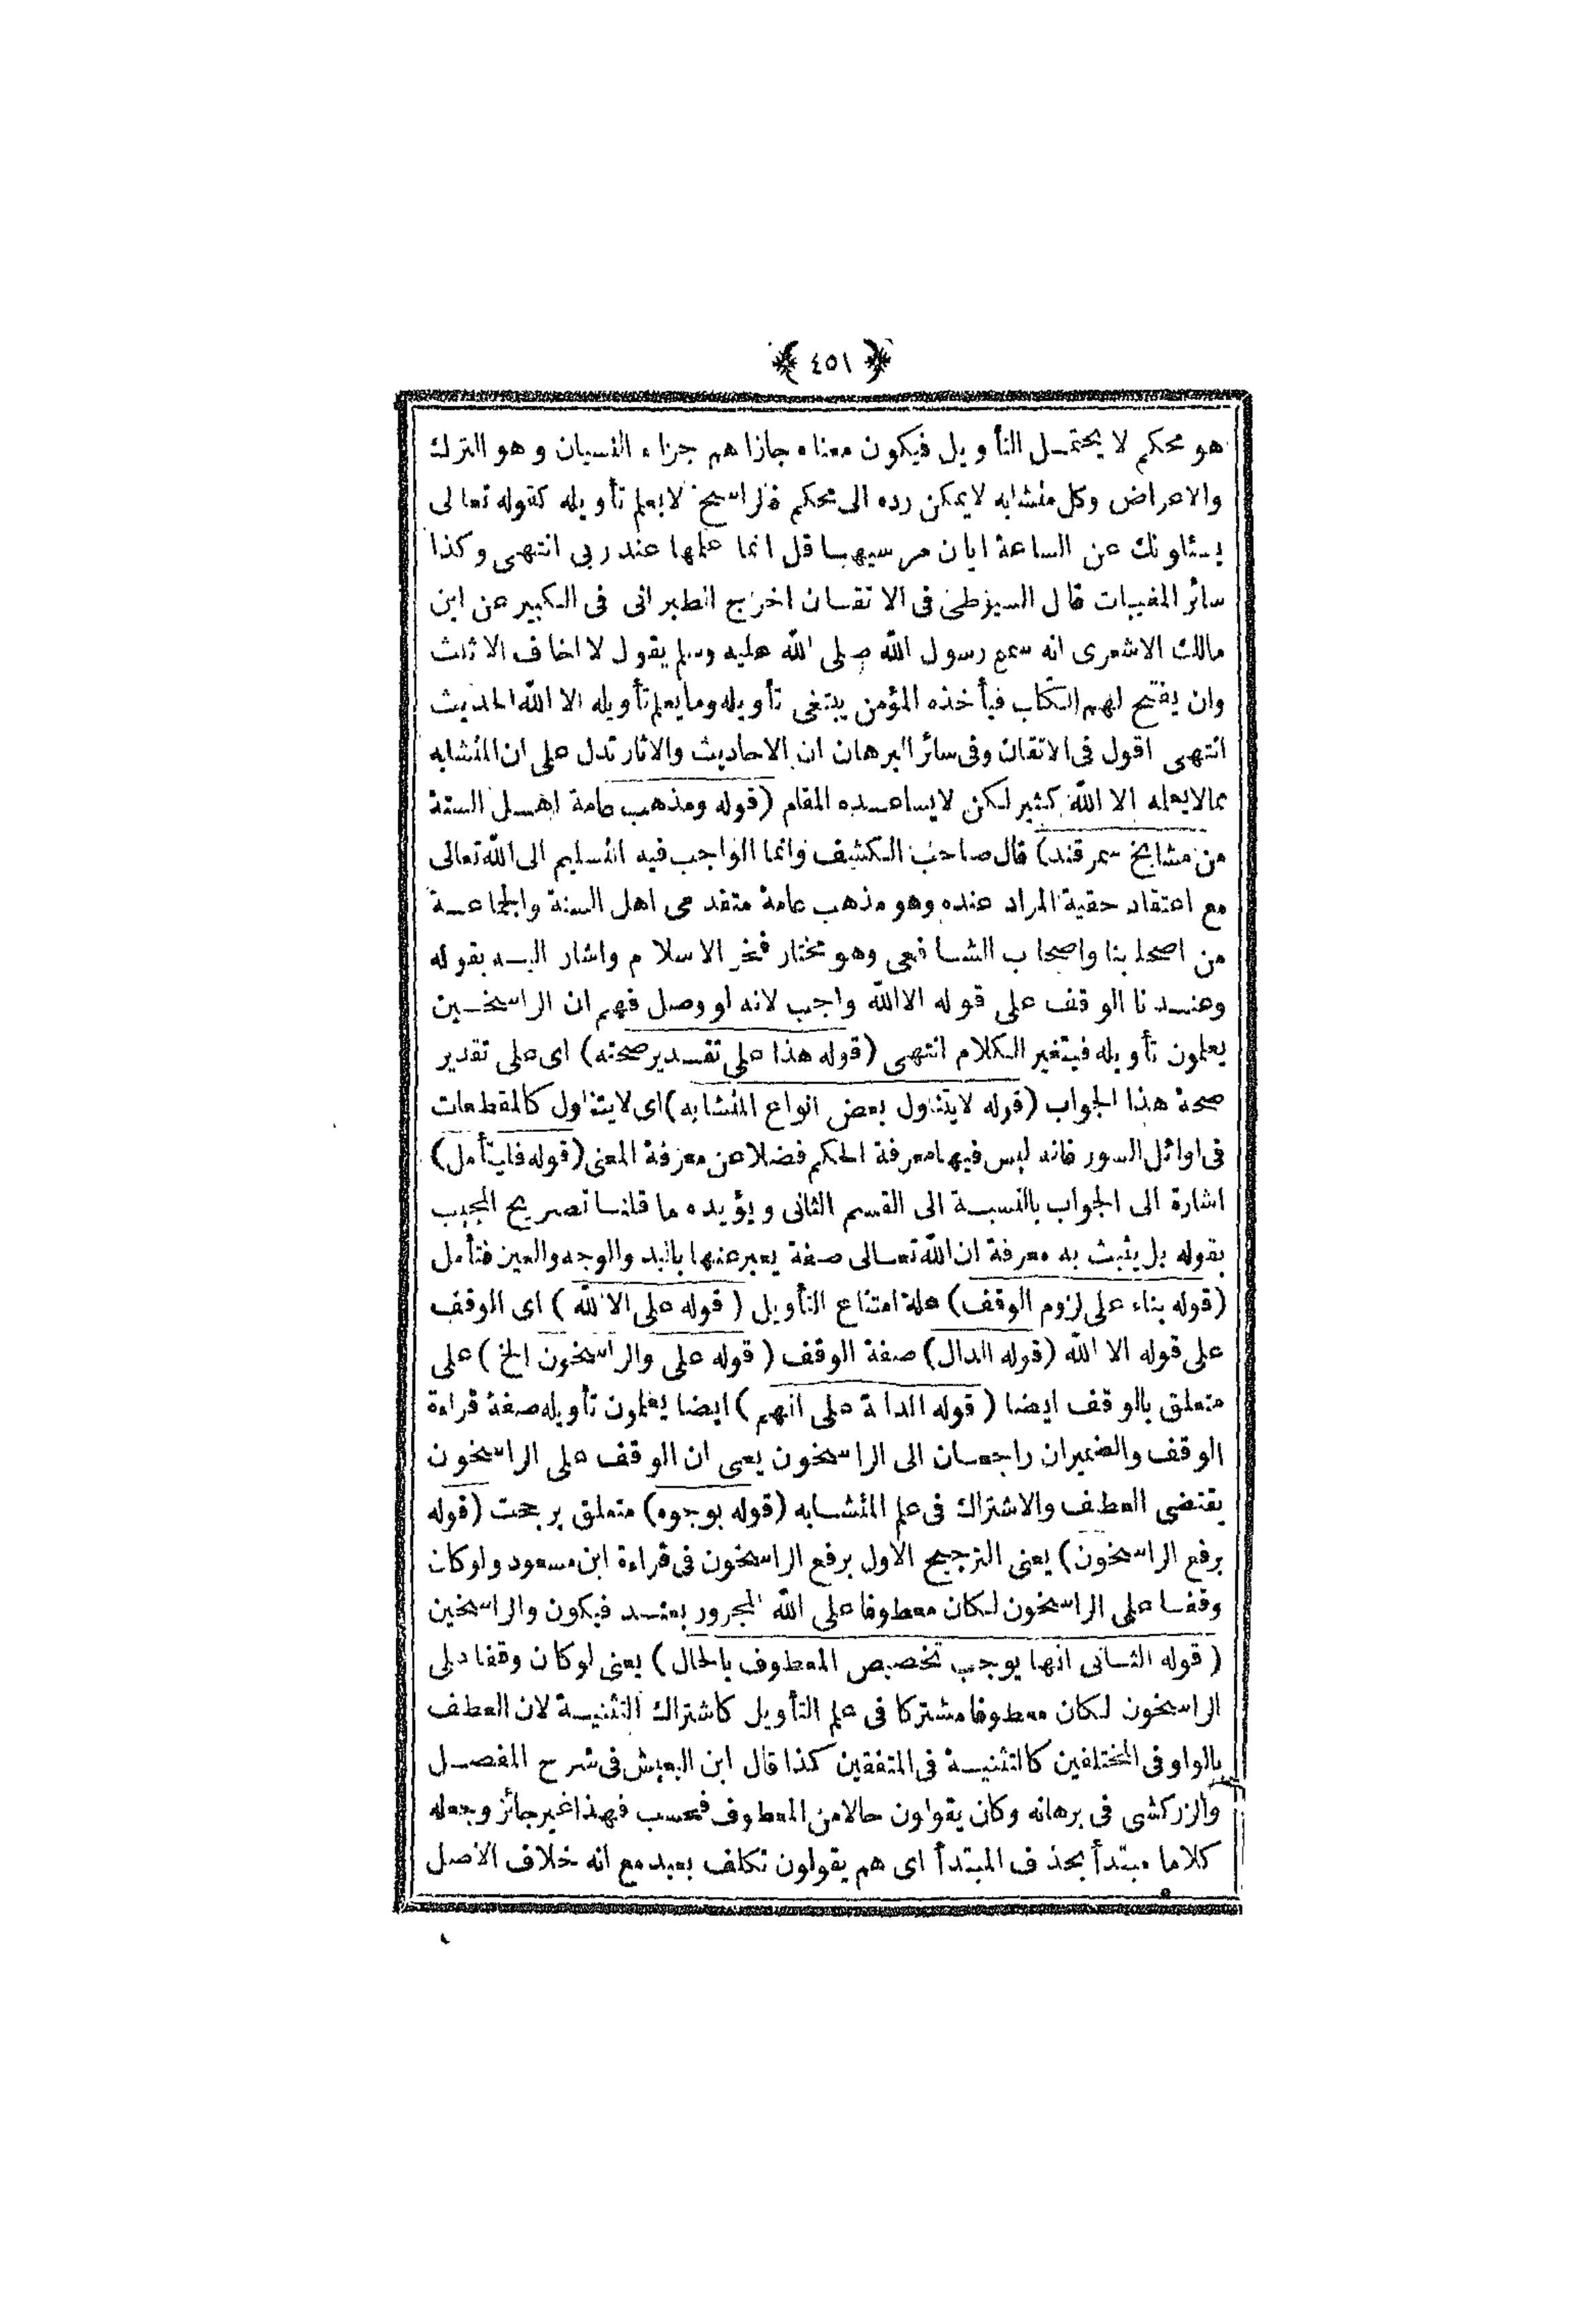 ﴿ ٤٥١ ﴾
هو محكم لا يحتمل التأويل فيكون معناه جازاهم جزاء النسيان وهو الترك
والاعراض وكل متشابه لا يمكن رده الى محكم فالراسخ لا يعلم تأويله كقوله تعالى
يسئلونك عن الساعة ايان مرسيها قل انما علمها عند ربى انتهى وكذا
سائر المغيبات قال السيوطى فى الاتقان اخرج الطبرانى فى الكبير عن ابن
مالك الاشعرى انه سمع رسول الله صلى الله عليه وسلم يقول لا اخاف الا ثلث
وان يفتح لهم الكتاب فيأخذه المؤمن يبتغى تأويله وما يعلم تأويله الا الله الحديث
انتهى اقول فى الاتقان وفى سائر البرهان ان الاحاديث والاثار تدل على ان المتشابه
مما لا يعلمه الا الله كثير لكن لا يساعده المقام (قوله ومذهب عامة اهل السنة
من مشايخ سمرقند) قال صاحب الكشف وانما الواجب فيه التسليم الى الله تعالى
مع اعتقاد حقية المراد عنده وهو مذهب عامة متقدمى اهل السنة والجماعة
من اصحابنا واصحاب الشافعى وهو مختار فخر الاسلام واشار اليه بقوله
وعندنا الوقف على قوله الا الله واجب لانه لو وصل فهم ان الراسخين
يعلمون تأويله فيتغير الكلام انتهى (قوله هذا على تقدير صحته) اى على تقدير
صحة هذا الجواب (قوله لا يتناول بعض انواع المتشابه) اى لا يتناول كالمقطعات
فى اوائل السور فانه ليس فيها معرفة الحكم فضلا عن معرفة المعنى (قوله فليتأمل)
اشارة الى الجواب بالنسبة الى القسم الثانى ويؤيده ما قلنا تصريح المجيب
بقوله بل يثبت به معرفة ان الله تعالى صفة يعبر عنها باليد والوجه والعين فتأمل
(قوله بناء على لزوم الوقف) علة امتناع التأويل (قوله على الا لله) اى الوقف
على قوله الا الله (قوله الدال) صفة الوقف (قوله على والراسخون الخ) على
متعلق بالوقف ايضا (قوله الدالة على انهم) ايضا يعلمون تأويله صفة قراءة
الوقف والضميران راجعان الى الراسخون يعنى ان الوقف على الراسخون
يقتضى العطف والاشتراك فى علم المتشابه (قوله بوجوه) متعلق برجحت (قوله
برفع الراسخون) يعنى الترجيح الاول برفع الراسخون فى قراءة ابن مسعود ولو كان
وقفا على الراسخون لكان معطوفا على الله المجرور بعند فيكون والراسخين
(قوله الثانى انها يوجب تخصيص المعطوف بالحال) يعنى لو كان وقفا على
الراسخون لكان معطوفا مشتركا فى علم التأويل كاشتراك التثنية لان العطف
بالواو فى المختلفين كالتثنية فى المتفقين كذا قال ابن اليعيش فى شرح المفصل
والزركشى فى برهانه وكان يقولون حالا من المعطوف فحسب فهذا غير جائز وجعله
كلاما مبتدأ بحذف المبتدأ اى هم يقولون تكلف بعيد مع انه خلاف الاصل